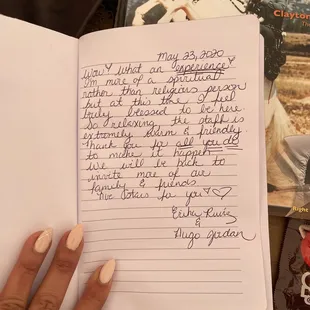 May 23, 2020
Wow! What an experience!
I'm more of a spiritual
rather than religious person
but at this time I feel
truly blessed to be here
So relaxing, the staff is
extremely warm & friendly.
Thank you for all you do
to make it happen
We will be back to
invite more of our
family & friends
for you! ♡
Erika Ruiz
&
Hugo Jordan
Clayton
Right